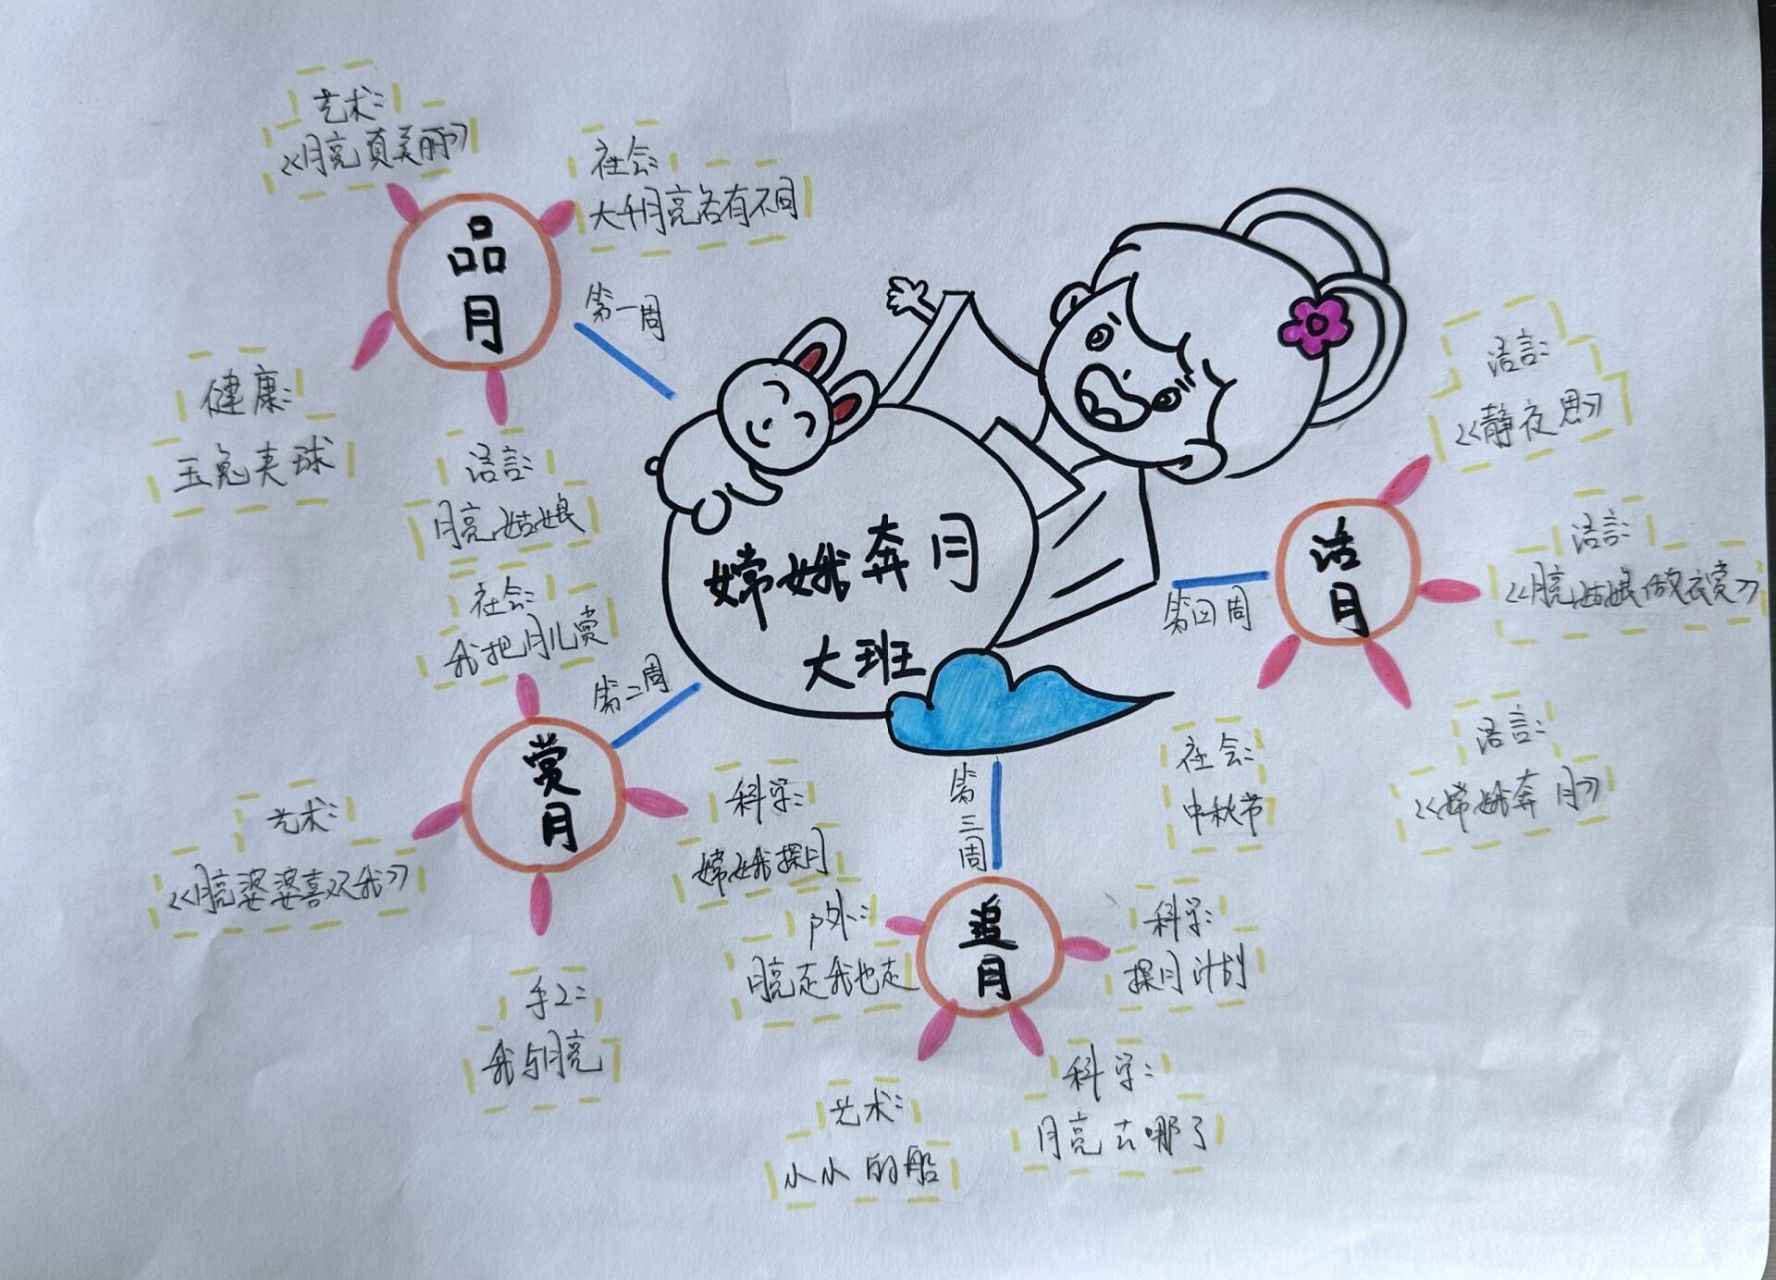 嫦娥奔月
大班
第一周
品月
艺术:
《月亮真美丽》
社会:
大千月亮各有不同
健康:
玉兔夹球
语言:
月亮姑娘
第二周
赏月
社会:
我把月儿赏
艺术:
《月亮婆婆喜欢我》
科学:
嫦娥探月
手工:
我与月亮
第三周
追月
户外:
月亮走我也走
科学:
探月计划
艺术:
小小的船
科学:
月亮去哪了
第四周
话月
语言:
《静夜思》
语言:
《月亮姑娘做衣裳》
语言:
《嫦娥奔月》
社会:
中秋节